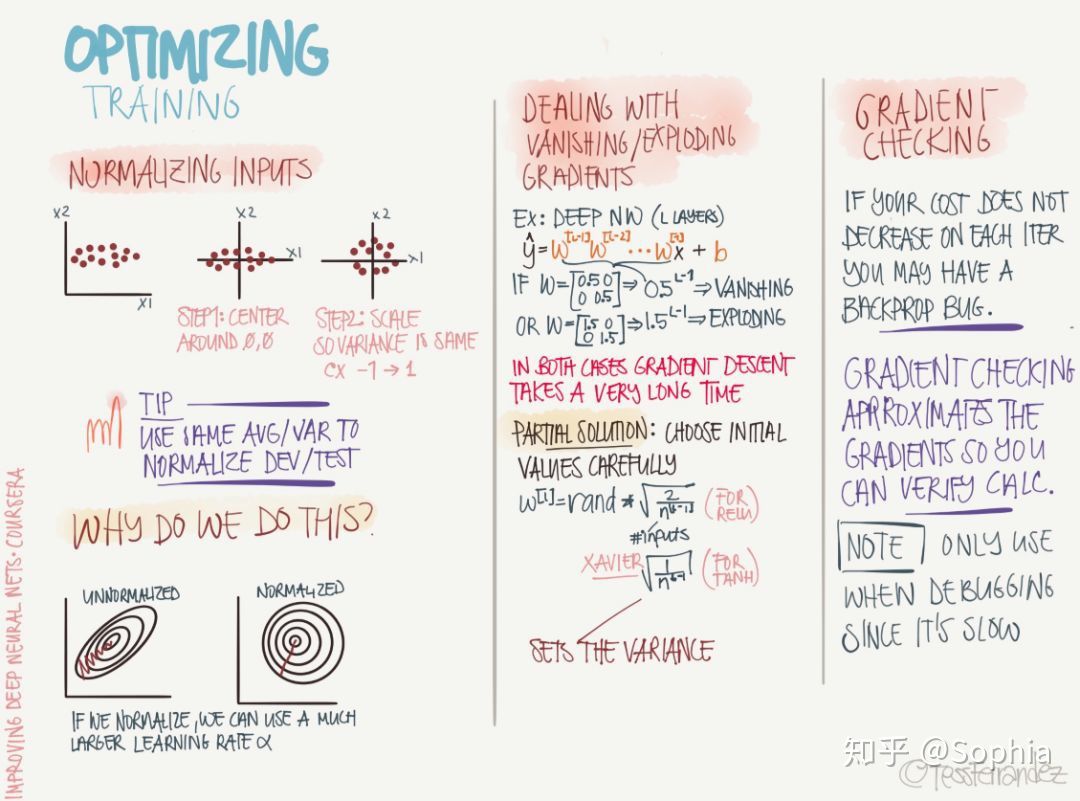 OPTIMIZING
TRAINING
NORMALIZING INPUTS
X2
X1
X2
X1
X2
X1
STEP1: CENTER
AROUND 0,0
STEP2: SCALE
SO VARIANCE IS SAME
EX -1 → 1
TIP
USE SAME AVG/VAR TO
NORMALIZE DEV/TEST
WHY DO WE DO THIS?
UNNORMALIZED
NORMALIZED
IF WE NORMALIZE, WE CAN USE A MUCH
LARGER LEARNING RATE α
IMPROVING DEEP NEURAL NETS · COURSERA
DEALING WITH
VANISHING/EXPLODING
GRADIENTS
EX: DEEP NW (L LAYERS)
ŷ = W^[L-1] W^[L-2] ... W^[1] X + b
IF W = [0.5 0 0 0.5] ⇒ 0.5^L-1 ⇒ VANISHING
OR W = [1.5 0 0 1.5] ⇒ 1.5^L-1 ⇒ EXPLODING
IN BOTH CASES GRADIENT DESCENT
TAKES A VERY LONG TIME
PARTIAL SOLUTION: CHOOSE INITIAL
VALUES CAREFULLY
W^[l] = rand * √(2/n^[l-1]) (FOR
RELU)
#inputs
XAVIER √(1/n^l-1) (FOR
TANH)
SETS THE VARIANCE
GRADIENT
CHECKING
IF YOUR COST DOES NOT
DECREASE ON EACH ITER
YOU MAY HAVE A
BACKPROP BUG.
GRADIENT CHECKING
APPROXIMATES THE
GRADIENTS SO YOU
CAN VERIFY CALC.
NOTE ONLY USE
WHEN DEBUGGING
SINCE IT'S SLOW
知乎 @Sophia
@TessFerrandez